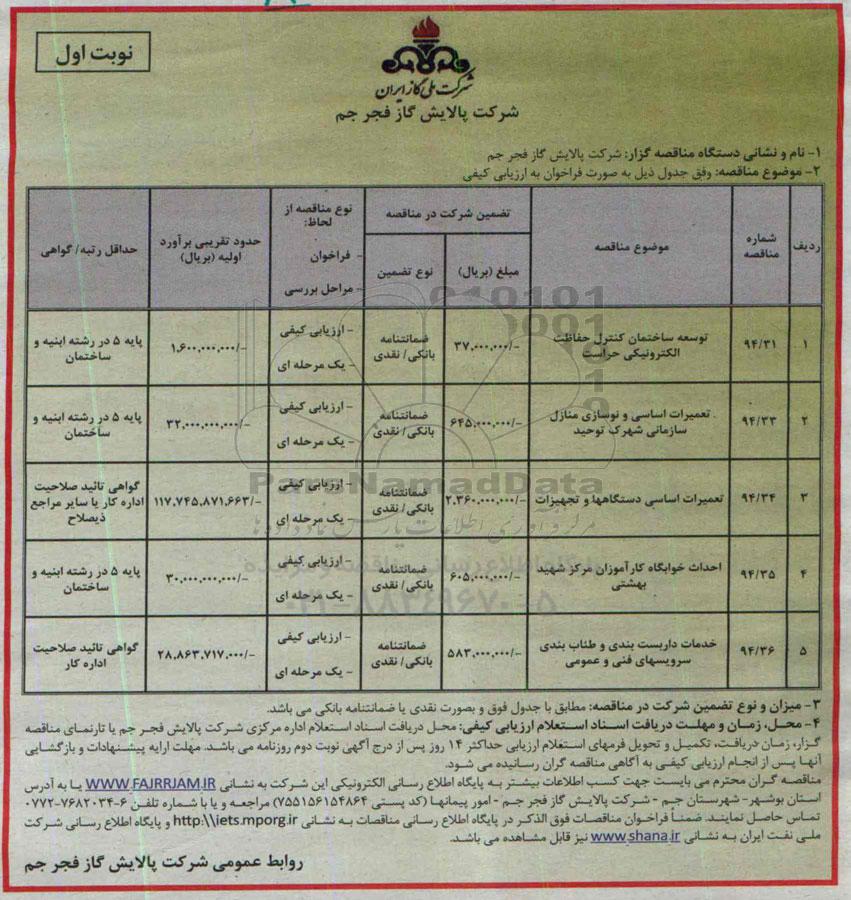 نوبت اول
شرکت ملی گاز ایران
شرکت پالایش گاز فجر جم
۱- نام و نشانی دستگاه مناقصه گزار: شرکت پالایش گاز فجر جم
۲- موضوع مناقصه: وفق جدول ذیل به صورت فراخوان به ارزیابی کیفی
ردیف | شماره مناقصه | موضوع مناقصه | تضمین شرکت در مناقصه | مبلغ (بریال) | نوع تضمین | نوع مناقصه از لحاظ: - فراخوان - مراحل بررسی | حدود تقریبی برآورد اولیه (بریال) | حداقل رتبه/ گواهی
۱ | ۹۴/۳۱ | توسعه ساختمان کنترل حفاظت الکترونیکی حراست | ۳۷,۰۰۰,۰۰۰/- | ضمانتنامه بانکی/ نقدی | - ارزیابی کیفی - یک مرحله ای | ۱,۶۰۰,۰۰۰,۰۰۰/- | پایه ۵ در رشته ابنیه و ساختمان
۲ | ۹۴/۳۳ | تعمیرات اساسی و نوسازی منازل سازمانی شهرک توحید | ۶۴۵,۰۰۰,۰۰۰/- | ضمانتنامه بانکی/ نقدی | - ارزیابی کیفی - یک مرحله ای | ۳۲,۰۰۰,۰۰۰,۰۰۰/- | پایه ۵ در رشته ابنیه و ساختمان
۳ | ۹۴/۳۴ | تعمیرات اساسی دستگاهها و تجهیزات | ۲,۳۶۰,۰۰۰,۰۰۰/- | ضمانتنامه بانکی/ نقدی | - ارزیابی کیفی - یک مرحله ای | ۱۱۷,۷۴۵,۸۷۱,۶۶۳/- | گواهی تائید صلاحیت اداره کار یا سایر مراجع ذیصلاح
۴ | ۹۴/۳۵ | احداث خوابگاه کارآموزان مرکز شهید بهشتی | ۶۰۵,۰۰۰,۰۰۰/- | ضمانتنامه بانکی/ نقدی | - ارزیابی کیفی - یک مرحله ای | ۳۰,۰۰۰,۰۰۰,۰۰۰/- | پایه ۵ در رشته ابنیه و ساختمان
۵ | ۹۴/۳۶ | خدمات داربست بندی و طناب بندی سرویسهای فنی و عمومی | ۵۸۳,۰۰۰,۰۰۰/- | ضمانتنامه بانکی/ نقدی | - ارزیابی کیفی - یک مرحله ای | ۲۸,۸۶۳,۷۱۷,۰۰۰/- | گواهی تائید صلاحیت اداره کار
ParsNamadData
۰۲۱-۸۸۳۴۹۶۷۰-۵
۳- میزان و نوع تضمین شرکت در مناقصه: مطابق با جدول فوق و بصورت نقدی یا ضمانتنامه بانکی می باشد.
۴- محل، زمان و مهلت دریافت اسناد استعلام ارزیابی کیفی: محل دریافت اسناد استعلام اداره مرکزی شرکت پالایش فجر جم یا تارنمای مناقصه
گزار، زمان دریافت، تکمیل و تحویل فرمهای استعلام ارزیابی حداکثر ۱۴ روز پس از درج آگهی نوبت دوم روزنامه می باشد. مهلت ارایه پیشنهادات و بازگشایی
آنها پس از انجام ارزیابی کیفی به آگاهی مناقصه گران رسانیده می شود.
مناقصه گران محترم می بایست جهت کسب اطلاعات بیشتر به پایگاه اطلاع رسانی الکترونیکی این شرکت به نشانی WWW.FAJRRJAM.IR یا به آدرس
استان بوشهر- شهرستان جم - شرکت پالایش گاز فجر جم - امور پیمانها (کد پستی ۷۵۵۱۵۶۱۵۴۸۶۴) مراجعه و یا با شماره تلفن ۶-۷۶۸۲۰۳۴-۰۷۷۲
تماس حاصل نمایند. ضمناً فراخوان مناقصات فوق الذکر در پایگاه اطلاع رسانی مناقصات به نشانی http:\\iets.mporg.ir و پایگاه اطلاع رسانی شرکت
ملی نفت ایران به نشانی www.shana.ir نیز قابل مشاهده می باشد.
روابط عمومی شرکت پالایش گاز فجر جم